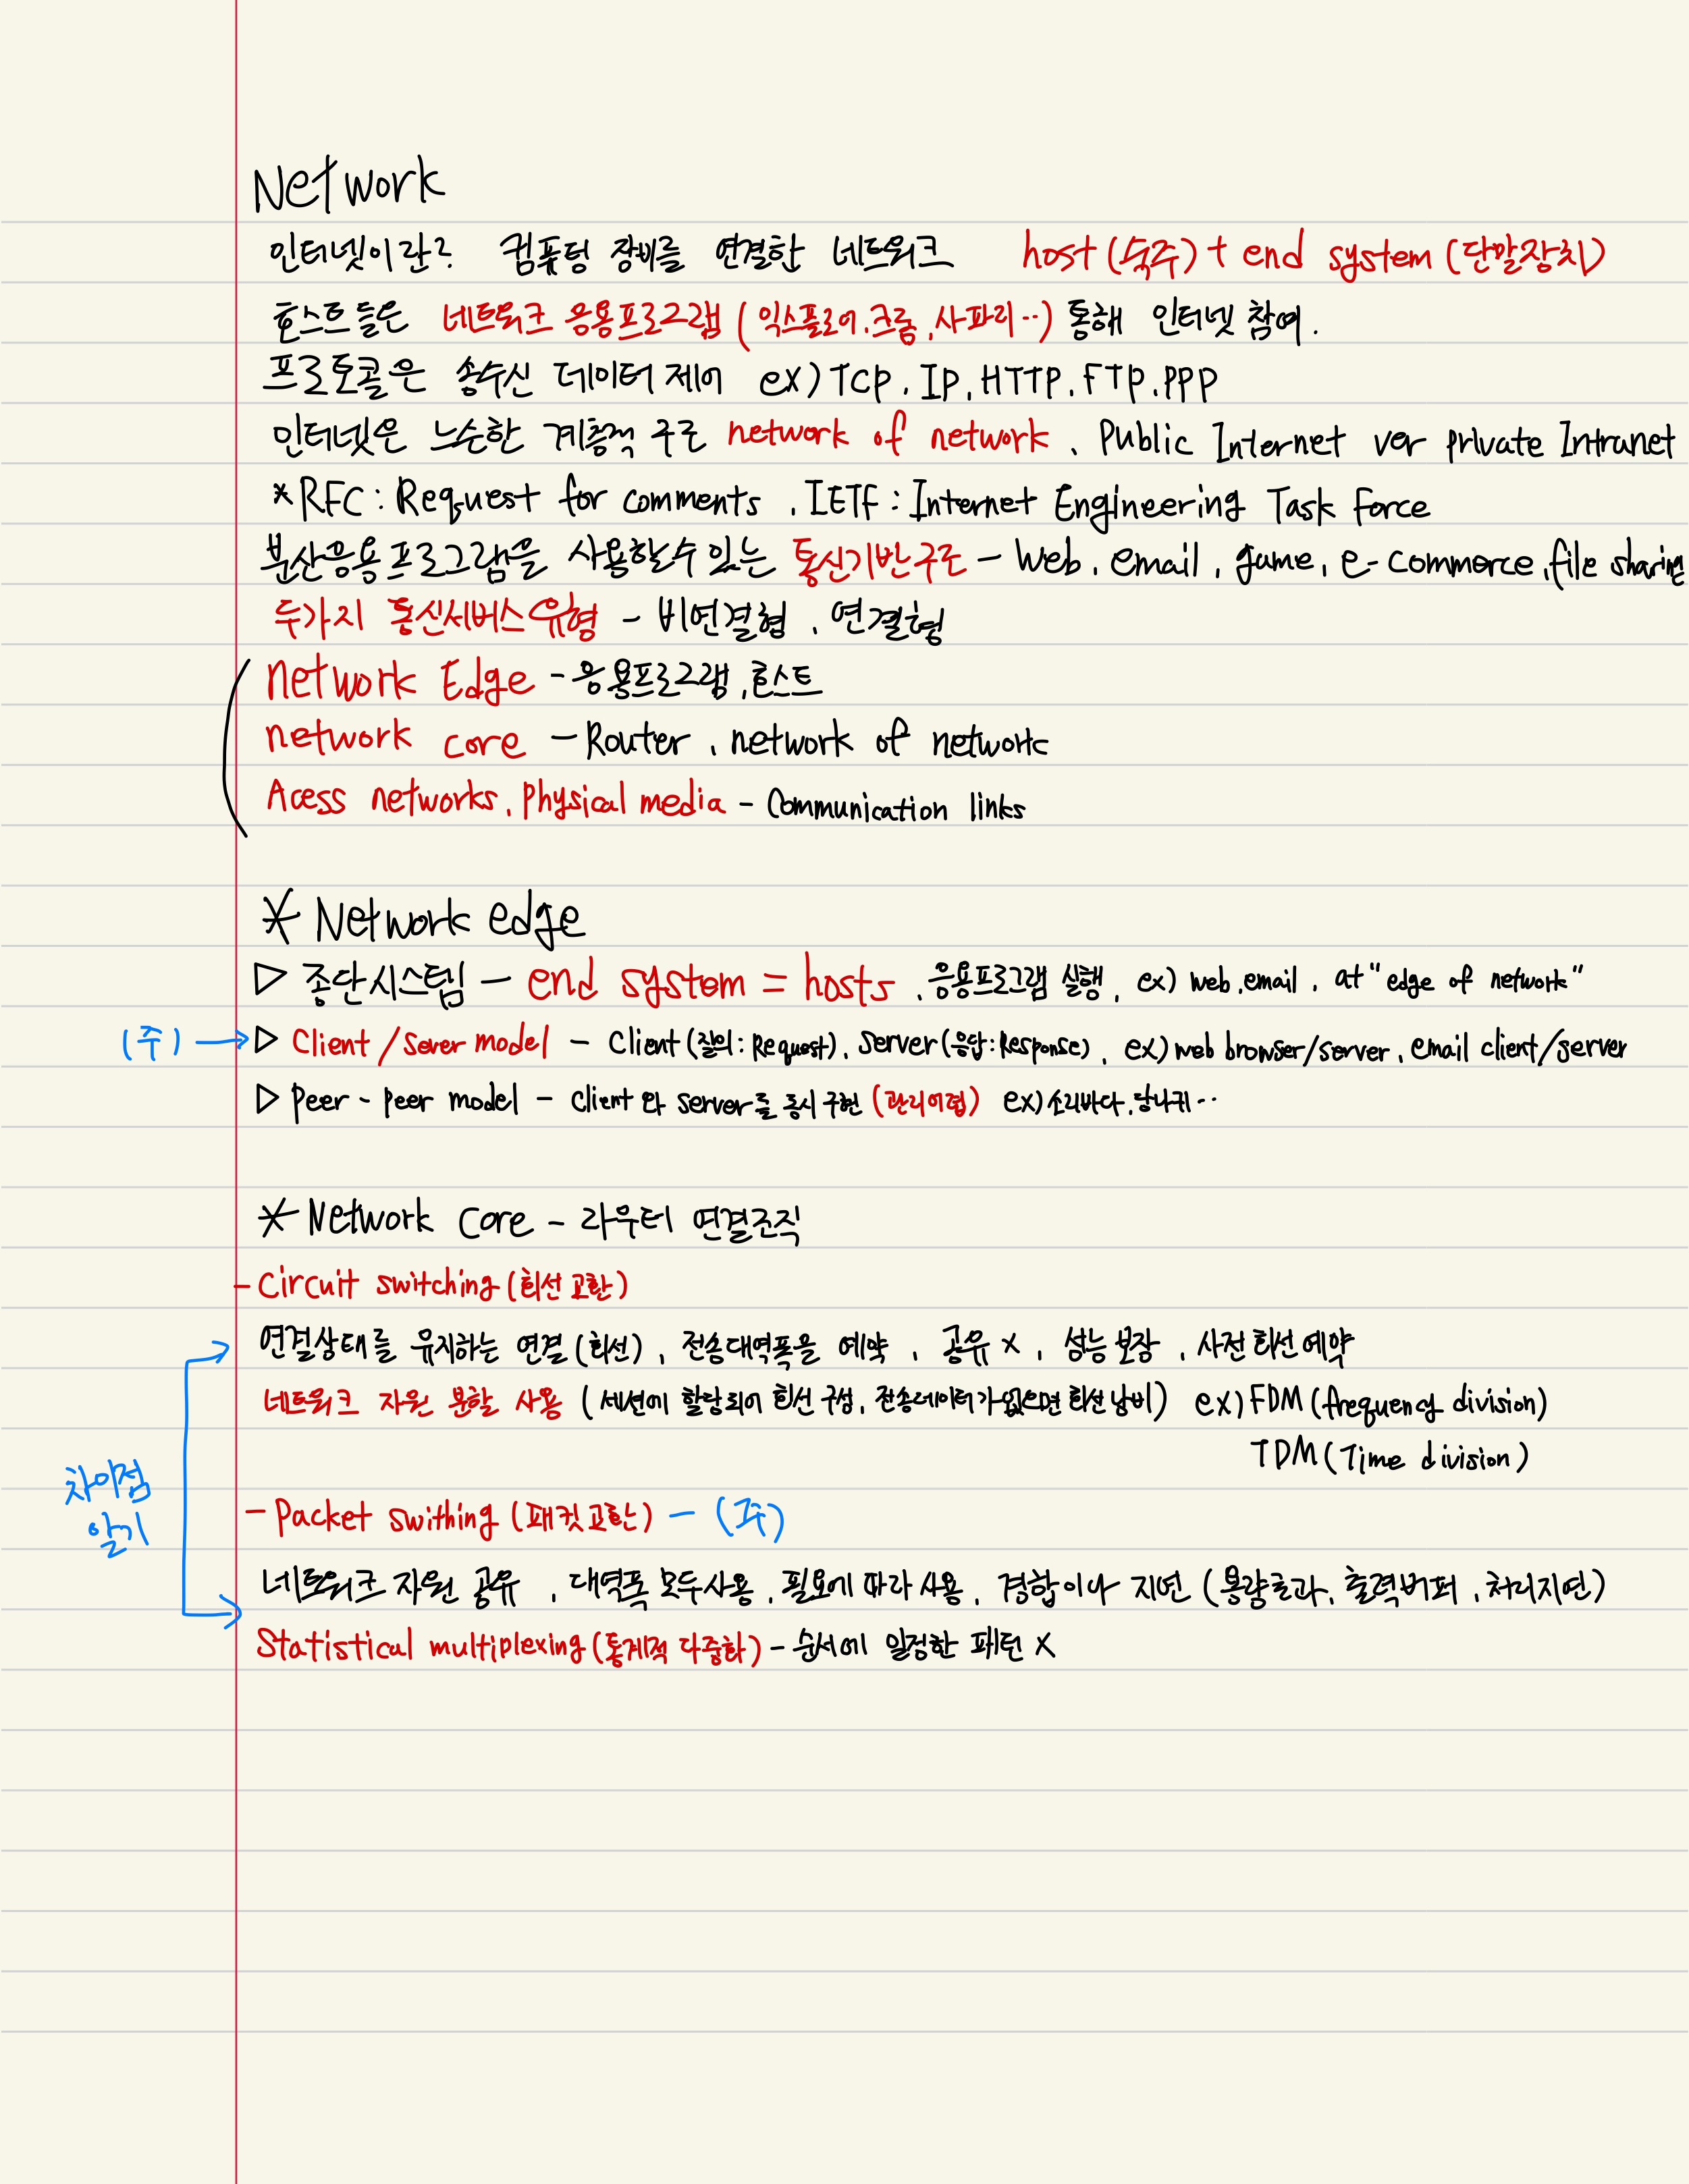 Network
인터넷이란? 컴퓨팅 장비를 연결한 네트워크 host (숙주) + end system (단말장치)
호스트들은 네트워크 응용프로그램 (익스플로어, 크롬, 사파리..) 통해 인터넷 참여.
프로토콜은 송수신 데이터 제어 ex) TCP, IP, HTTP, FTP, PPP
인터넷은 느슨한 계층적 구조 network of network, Public Internet ver private Intranet
*RFC : Request for comments, IETF : Internet Engineering Task Force
분산응용프로그램을 사용할수 있는 통신기반구조 - Web, email, game, e-commerce, file sharing
두가지 통신서비스유형 - 비연결형, 연결형
network Edge - 응용프로그램, 호스트
network core - Router, network of network
Acess networks, Physical media - Communication links
* Network edge
▷ 종단시스템 - end system = hosts, 응용프로그램 실행, ex) web, email, at "edge of network"
(주) → ▷ Client/Sever model - Client (질의: Request), Server (응답: Response), ex) web browser/server, email client/server
▷ Peer - Peer model - Client와 server를 동시 구현 (관리어렵) ex) 소리바다, 당나귀..
* Network core - 라우터 연결조직
- Circuit switching (회선 교환)
연결상태를 유지하는 연결 (회선), 전송대역폭을 예약, 공유 X, 성능 보장, 사전 회선 예약
네트워크 자원 분할 사용 (세션에 할당되어 회선 구성, 전송데이터가 없으면 회선 낭비) ex) FDM (frequency division)
TDM (Time division)
차이점
알기
- Packet swithing (패킷 교환) - (주)
네트워크 자원 공유, 대역폭 모두사용, 필요에 따라 사용, 경합이나 지연 (용량초과, 출력버퍼, 처리지연)
Statistical multiplexing (통계적 다중화) - 순서에 일정한 패턴 X